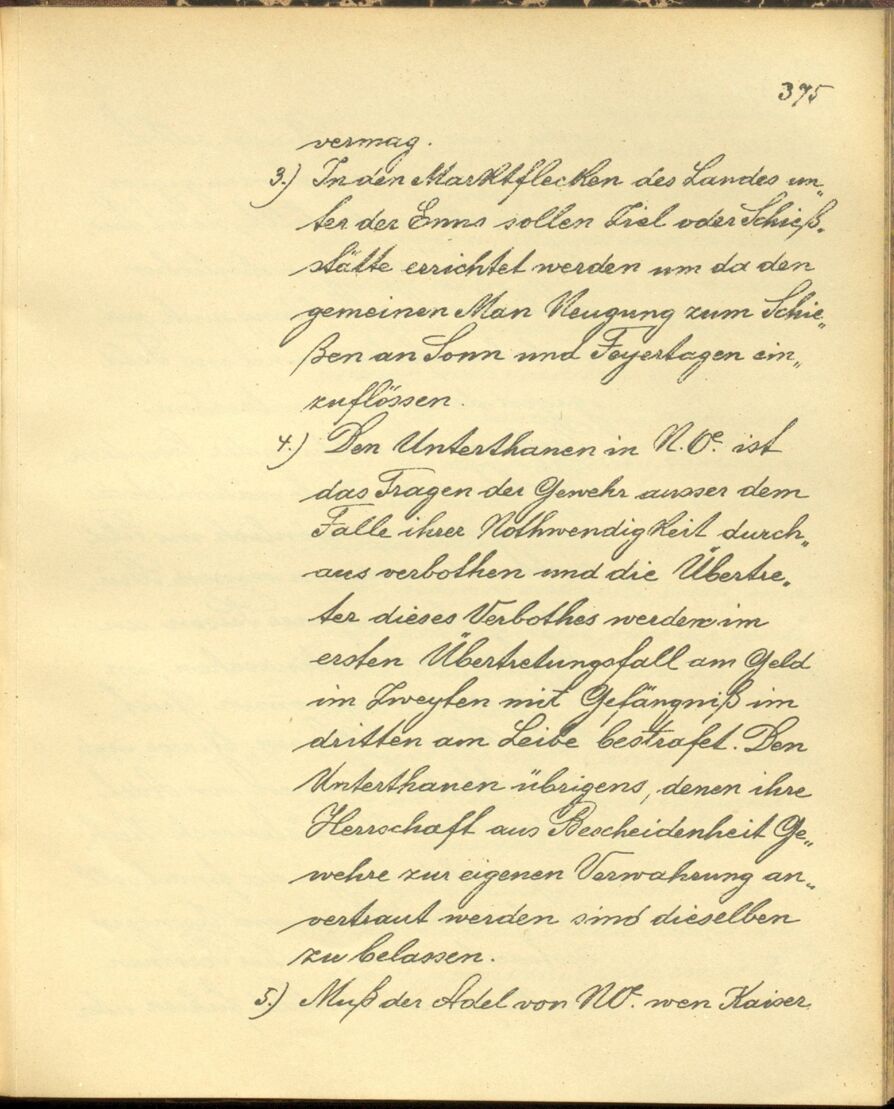 375
vermag.
3.) In den Marktflecken des Landes un„
ter der Enns sollen Ziel oder Schieß„
stätte errichtet werden um da den
gemeinen Man Neugung zum Schie„
ßen an Sonn und Feyertagen ein„
zuflössen.
4.) Den Unterthanen in N.Ö. ist
das Tragen der Gewehr ausser dem
Falle ihrer Nothwendigkeit durch„
aus verbothen und die Übertre„
ter dieses Verbothes werden im
ersten Übertretungsfall am Geld
im Zweyten mit Gefängniß im
dritten am Leibe bestrafet. Den
Unterthanen übrigens, denen ihre
Herrschaft aus Bescheidenheit Ge„
wehre zur eigenen Verwahrung an„
vertraut werden sind dieselben
zu belassen.
5.) Muß der Adel von NÖ. wen Kaiser